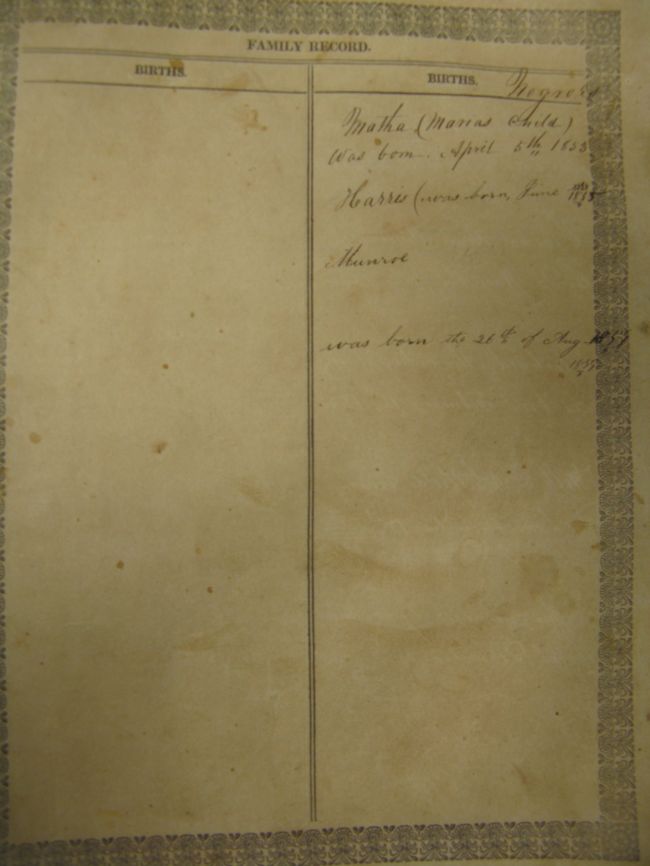 FAMILY RECORD.
BIRTHS.
BIRTHS.
Negroes
Matha (Marias child)
was born. April 5th, 1853
Harris (was born, June
1855
Munroe
was born the 26th of Aug 1857